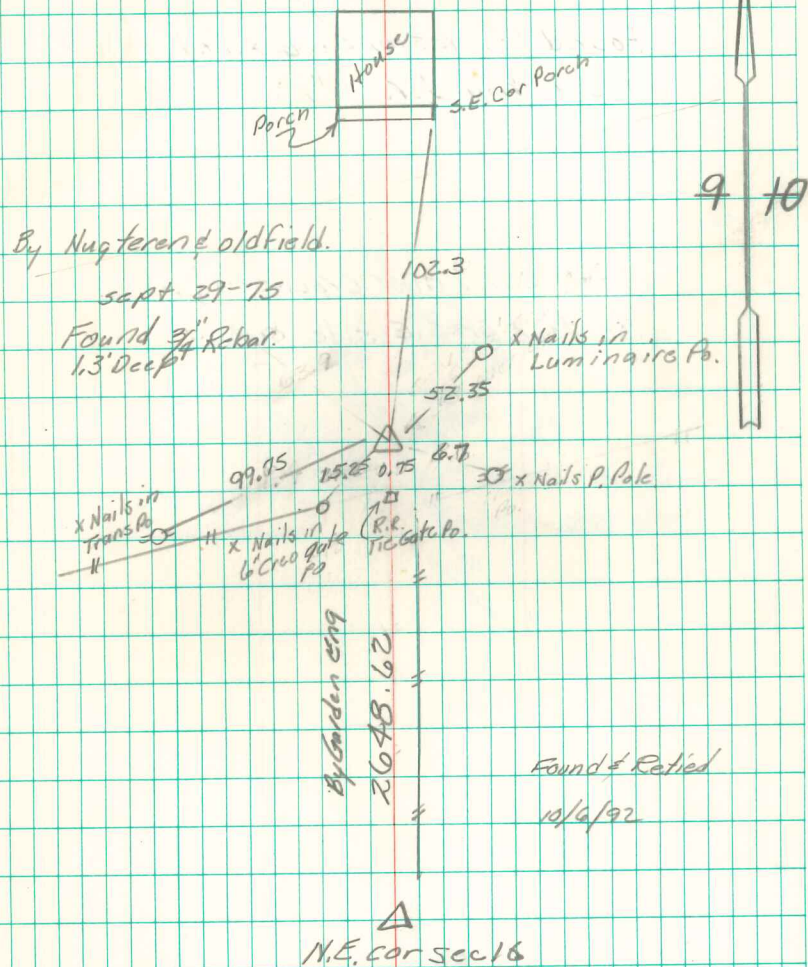 House
Porch
S.E. Cor Porch
9 10
By Nugteren & oldfield.
sept 29-75
Found 3/4" Rebar.
1.3' Deep
102.3
x Nails in
Luminaire Po.
52.35
99.75
15.25
0.75
6.7
x Nails P. Pole
x Nails in
Trans Po
x Nails in
6" Creo gate
Po
R.R.
Tie Gate Po.
By Garden Eng
2648.62
Found & Retied
10/6/92
N.E. cor sec 16